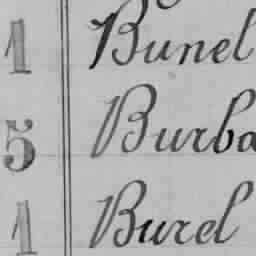 1 Bunel
5 Burba
1 Burel